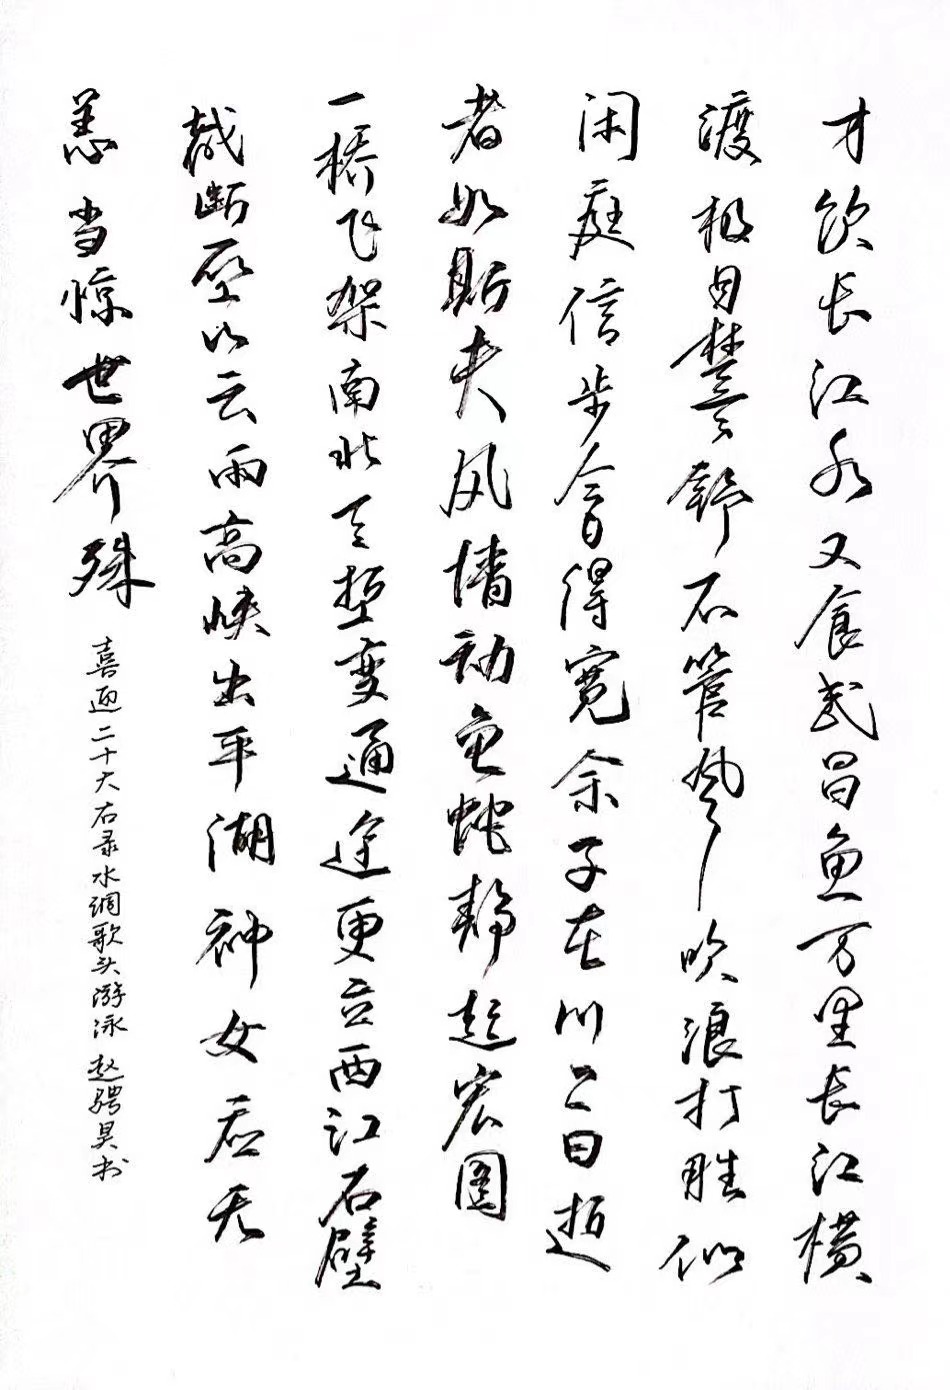 才饮长江水又食武昌鱼万里长江横
渡极目楚天舒不管风吹浪打胜似
闲庭信步今日得宽余子在川上曰逝
者如斯夫风樯动龟蛇静起宏图
一桥飞架南北天堑变通途更立西江石壁
截断巫山云雨高峡出平湖神女应无
恙当惊世界殊
喜迎二十大右录水调歌头游泳 赵骋昊书